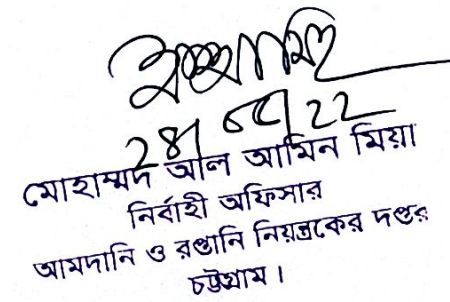 মোহাম্মদ আল আমিন মিয়া
নির্বাহী অফিসার
আমদানি ও রপ্তানি নিয়ন্ত্রকের দপ্তর
চট্টগ্রাম।